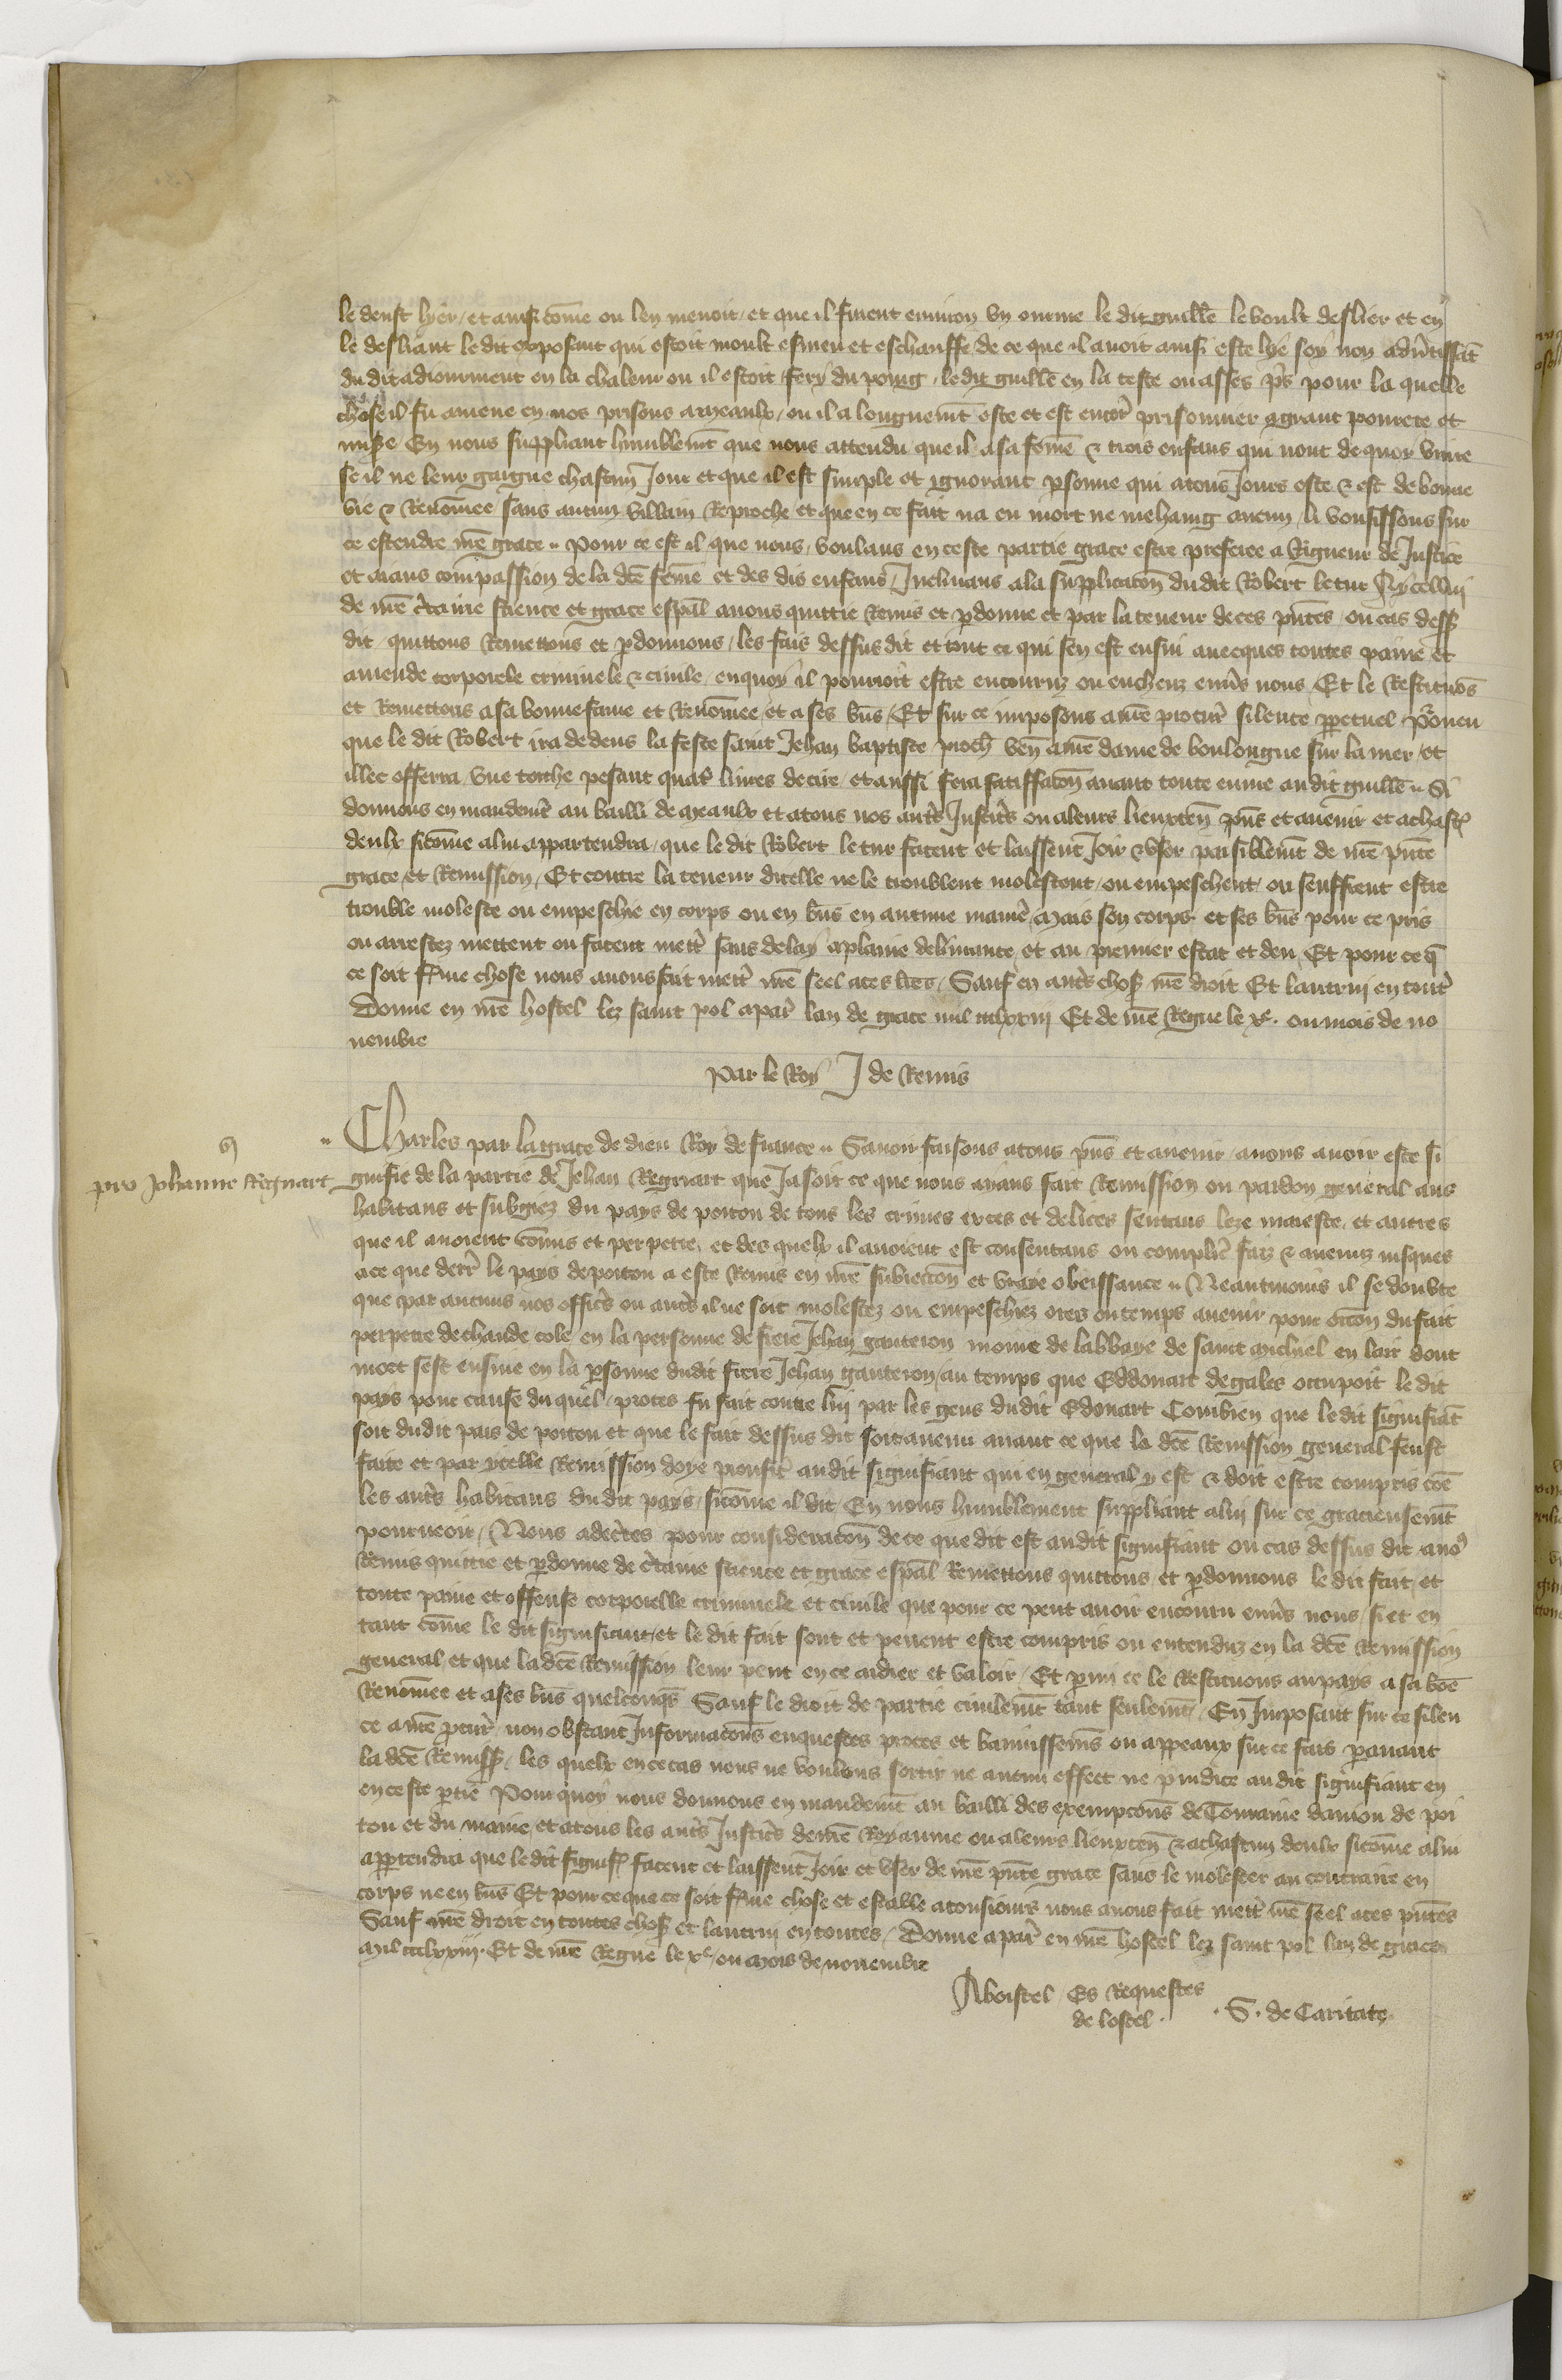 le deust lyer / et ainsi come on len menoit / et que il furent environ un ourme le dit guille le voult deslier et en
le desliant le dit exposant qui estoit moult esmeu et eschauffe de ce que il avoit ainsi este lye soy non advtissat
du dit adiournement en la chaleur ou il estoit fery du poing / le dit guille en la teste ou asses ps pour la quelle
chose il fu amene en nos prisons a meaulx / ou il a longuemt este et est encor prisonnier a grant povrete et
mise En nous suppliant humblemt que nous attendu que il a sa feme & trois enfans qui nont de quoy vivre
se il ne leur gaigne chascun Jour et que il est simple et ignorant psonne qui a tous Jours este & est de bonne
vie & Renomee sans aucun villain Reproche et que en ce fait na eu mort ne mehaing aucun / li voulsissons sur
ce estendre nre grace " Pour ce est il que nous / voulans en ceste partie grace estre preferee a Rigueur de Justice
et aians compassion de la dce feme et des dis enfans / Inclinans a la supplicacon du dit Robert letur A ycellui
de nre ctaine science et grace espal avons quittie Remis et pdonne et par la teneur de ces pntes / ou cas dess
dit / quittons Remettons et pdonnons / les fais dessus dit et tout ce qui sen est ensui avecques toutes paine et
amende corporele criminele & civile / en quoy il pourroit estre encouruz ou encheuz envs nous Et le Restituos
et Remettons a sa bonne fame et Renomee / et a ses bns / Et sur ce imposons a nre procur silence ppetuel / Proveu
que le dit Robert ira dedens la feste saint Jehan baptiste proch ven a nre dame de boulongne sur la mer / et
illec offerra / une torche pesant quat livres de cire / et aussi fera satiffacon avant toute euvre au dit guille " Si
donnons en mandemt au bailli de meaulx et a tous nos auts Justics ou a leurs lieuxten pns et avenir et a chasc
deulx sicome a lui appartendra / que le dit Robert letur facent et laissent Joir & user paisiblemt de nre pnte
grace et Remission / Et contre la teneur dicelle ne le troublent molestent / ou empeschent / ou seuffrent estre
trouble moleste ou empeschie en corps ou en bns en aucune manie / mais son corps et ses bns pour ce pris
ou arrestez mettent ou facent mett sans delay a plaine delivrance / et au premier estat et deu Et pour ce q
ce soit fme chose nous avons fait mett nre seel a ces lres / Sauf en auts choss nre droit Et lautrui en tout
Donne en nre hostel lez saint pol a par lan de grace mil ccclxxiij Et de nre Regne le xe. ou mois de no
vembre
Par le Roy J de Remis
pro Johanne Regnart
Charles par la grace de dieu Roy de france " Savoir faisons a tous pns et avenir / a nous avoir este si
gnifie de la partie de Jehan Regnart que Jasoit ce que nous aians fait Remission ou pardon general aus
habitans et subgiez du pays de poitou de tous les crimes exces et delices sentans leze maieste / et autres
que il avoient comis et perpetre / et des quelx il avoient est consentans ou complic faiz & avenuz iusques
a ce que derr le pays de poitou a este Remis en nre subieccon et vraye obeissance " Neantmoins il se doubte
que par aucuns nos offics ou auts il ne soit molestez ou empeschiez ores ou temps avenir pour occon du fait
perpetre de chaude cole en la personne de frere Jehan gauteron moine de labbaye de saint michiel en lair dont
mort sest ensuie en la psonne dudit frere Jehan gauteron / au temps que Eddouart de gales occupoit le dit
pays pour cause du quel / proces fu fait contre lui par les gens dudit Edouart Combien que le dit signifiat
soit dudit pais de poitou et que le fait dessus dit soit avenu avant ce que la dce Remission general feust
faite et par ycelle Remission doye proufit au dit signifiant qui en general y est & doit estre compris coe
les auts habitans du dit pays / sicome il dit / En nous humblement suppliant a lui sur ce gracieusemt
pourveoir / Nous adectes pour consideracon de ce que dit est au dit signifiant ou cas dessus dit avos
Remis quittie et pdonne de ctaine science et grace espal Remettons quittons et pdonnons le dit fait et
toute paine et offense corporelle criminele et civile que pour ce peut avoir encouru envs nous / si et en
tant come le dit signifiant et le dit fait sont et peuent estre compris ou entenduz en la dce Remission
general / et que la dce Remission leur peut en ce aidier et valoir / Et pmi ce le Restituons au pays a sa boe
Renomee et a ses bns quelconqs Sauf le droit de partie civilemt tant seulemt / En Imposant sur ce silen
ce a nre pcur non obstant Informacons enquestes proces et bannissems ou appeaux sur ce fais pavant
la dce Remiss / les quelx en ce cas nous ne voulons sortir ne aucun effect ne piudice au dit signifiant en
en ceste ptie Pour quoy nous donnons en mandemt au bailli des exempcons de Touraine danjou de poi
tou et du maine / et a tous les auts Justics de nre Royaume ou a leurs lieuxten & a chascun deulx sicome a lui
apptendra que le dit signif facent et laissent Joir et user de nre pnte grace sans le molester au contraire en
corps ne en bns Et pour ce que ce soit fme chose et estable a tousiours nous avons fait mett nre seel a ces pntes
Sauf nre droit en toutes choss et lautrui en toutes / Donne a par en nre hostel lez saint pol lan de grace
mil ccclxxiij Et de nre Regne le xe / ou mois de novembre
Es Requestes
de lostel . . S . de Caritate